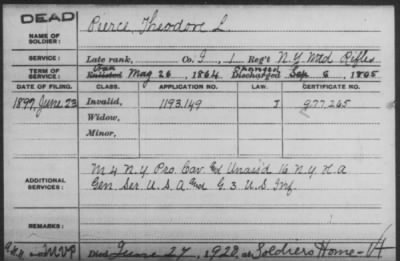 DEAD
NAME OF SOLDIER: Pierce, Theodore L.
SERVICE: Late rank, Co. G, 1 Reg't N.Y. Mtd Rifles
TERM OF SERVICE: Enlisted Aug 26, 1864 Discharged Sep 6, 1865
DATE OF FILING. CLASS. APPLICATION NO. LAW. CERTIFICATE NO.
1897, June 23 Invalid, 1193.149 977.265
Widow,
Minor,
ADDITIONAL SERVICES: M 4 N.Y. Pro. Cav. and Unas'd 16 N.Y. H.A
Gen. Ser. U.S.A. and G. 3 U.S. Inf.
REMARKS:
Died June 27, 1928, at Soldiers Home - Vt